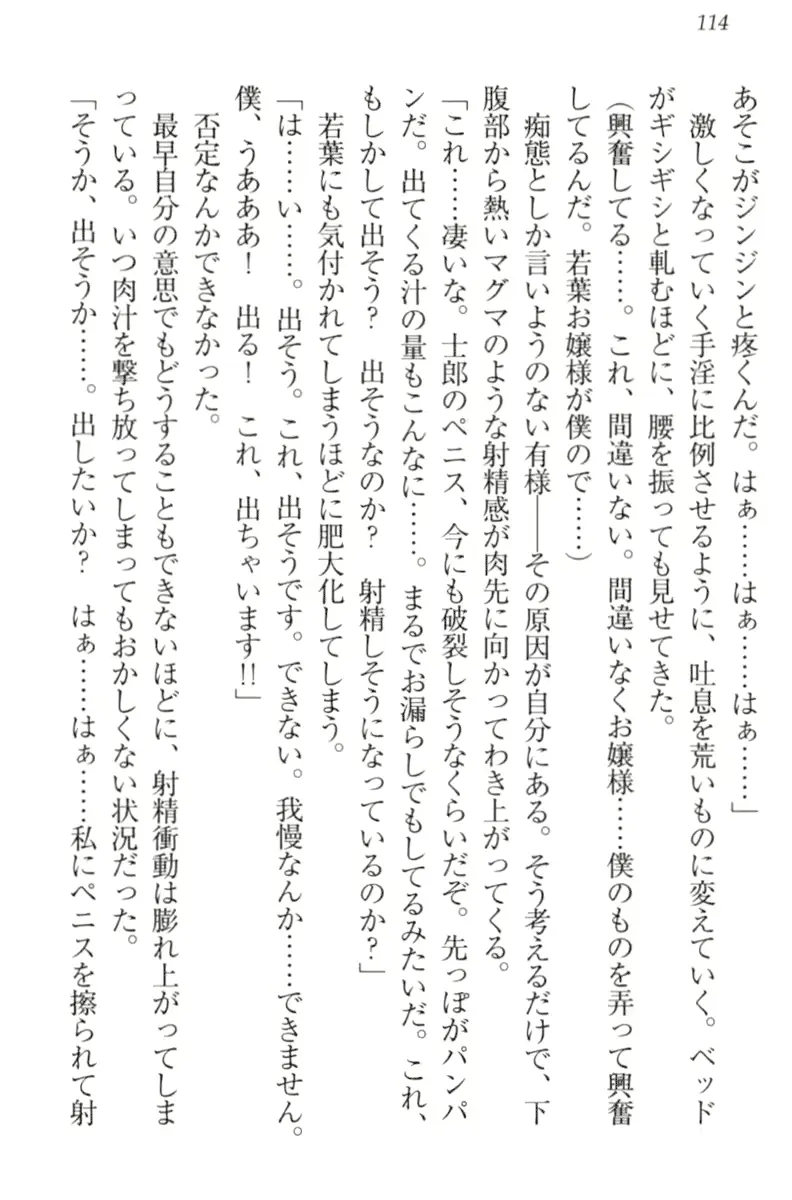 114
あそこがジンジンと疼くんだ。はぁ……はぁ……はぁ……」
　激しくなっていく手淫に比例させるように、吐息を荒いものに変えていく。ベッド
がギシギシと軋むほどに、腰を振っても見せてきた。
（興奮してる……。これ、間違いない。間違いなくお嬢様……僕のものを弄って興奮
してるんだ。若葉お嬢様が僕ので……）
　痴態としか言いようのない有様――その原因が自分にある。そう考えるだけで、下
腹部から熱いマグマのような射精感が肉先に向かってわき上がってくる。
「これ……凄いな。士郎のペニス、今にも破裂しそうなくらいだぞ。先っぽがパンパ
ンだ。出てくる汁の量もこんなに……。まるでお漏らしでもしてるみたいだ。これ、
もしかして出そう？　出そうなのか？　射精しそうになっているのか？」
　若葉にも気付かれてしまうほどに肥大化してしまう。
「は……い……。出そう。これ、出そうです。できない。我慢なんか……できません。
僕、うあああ！　出る！　これ、出ちゃいます!!」
　否定なんかできなかった。
　最早自分の意思でもどうすることもできないほどに、射精衝動は膨れ上がってしま
っている。いつ肉汁を撃ち放ってしまってもおかしくない状況だった。
「そうか、出そうか……。出したいか？　はぁ……はぁ……私にペニスを擦られて射